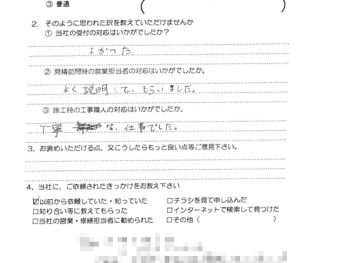 ③ 普通
2. そのように思われた訳を教えていただけませんか
① 当社の受付の対応はいかがでしたか？
よかった
② 見積訪問時の営業担当者の対応はいかがでしたか。
よく説明して、もらいました。
③ 施工時の工事職人の対応はいかがでしたか。
丁寧な、仕事でした。
3. お褒めいただける点、又こうしたらもっと良い点等ご意見下さい。
4. 当社に、ご依頼されたきっかけをお教え下さい
☑以前から依頼していた・知っていた □チラシを見て申し込んだ
□知り合い等に教えてもらった □インターネットで検索して見つけた
□当社の営業・修繕担当者に勧められた □その他（ ）